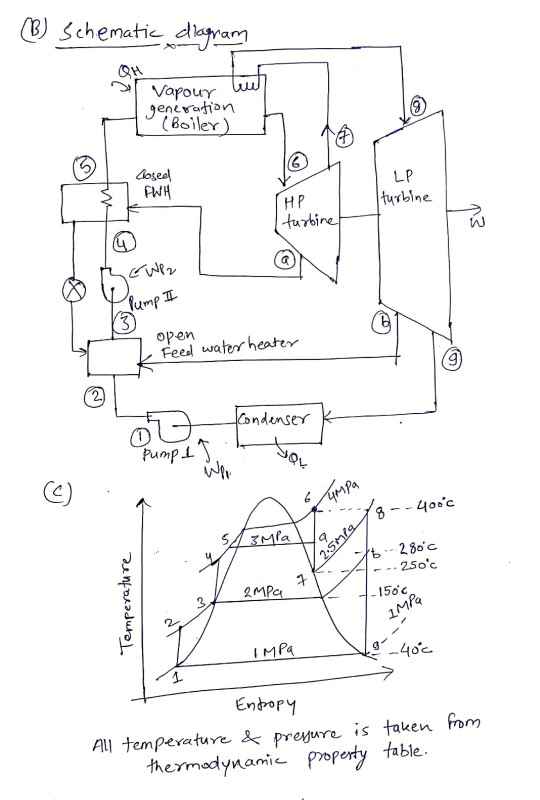 (B) Schematic diagram
QH
Vapour
generation
(Boiler)
8
7
6
5
closed
FWH
HP
turbine
LP
turbine
W
4
a
WP2
Pump II
3
b
open
Feed water heater
9
2
Condenser
1
Pump 1
WP1
QL
(C)
6
4MPa
8
400°c
5
3MPa
a
2.5MPa
4
b
280°c
7
250°c
3
2MPa
150°c
2
1MPa
1MPa
9
40°c
1
Temperature
Entropy
All temperature & pressure is taken from
thermodynamic property table.